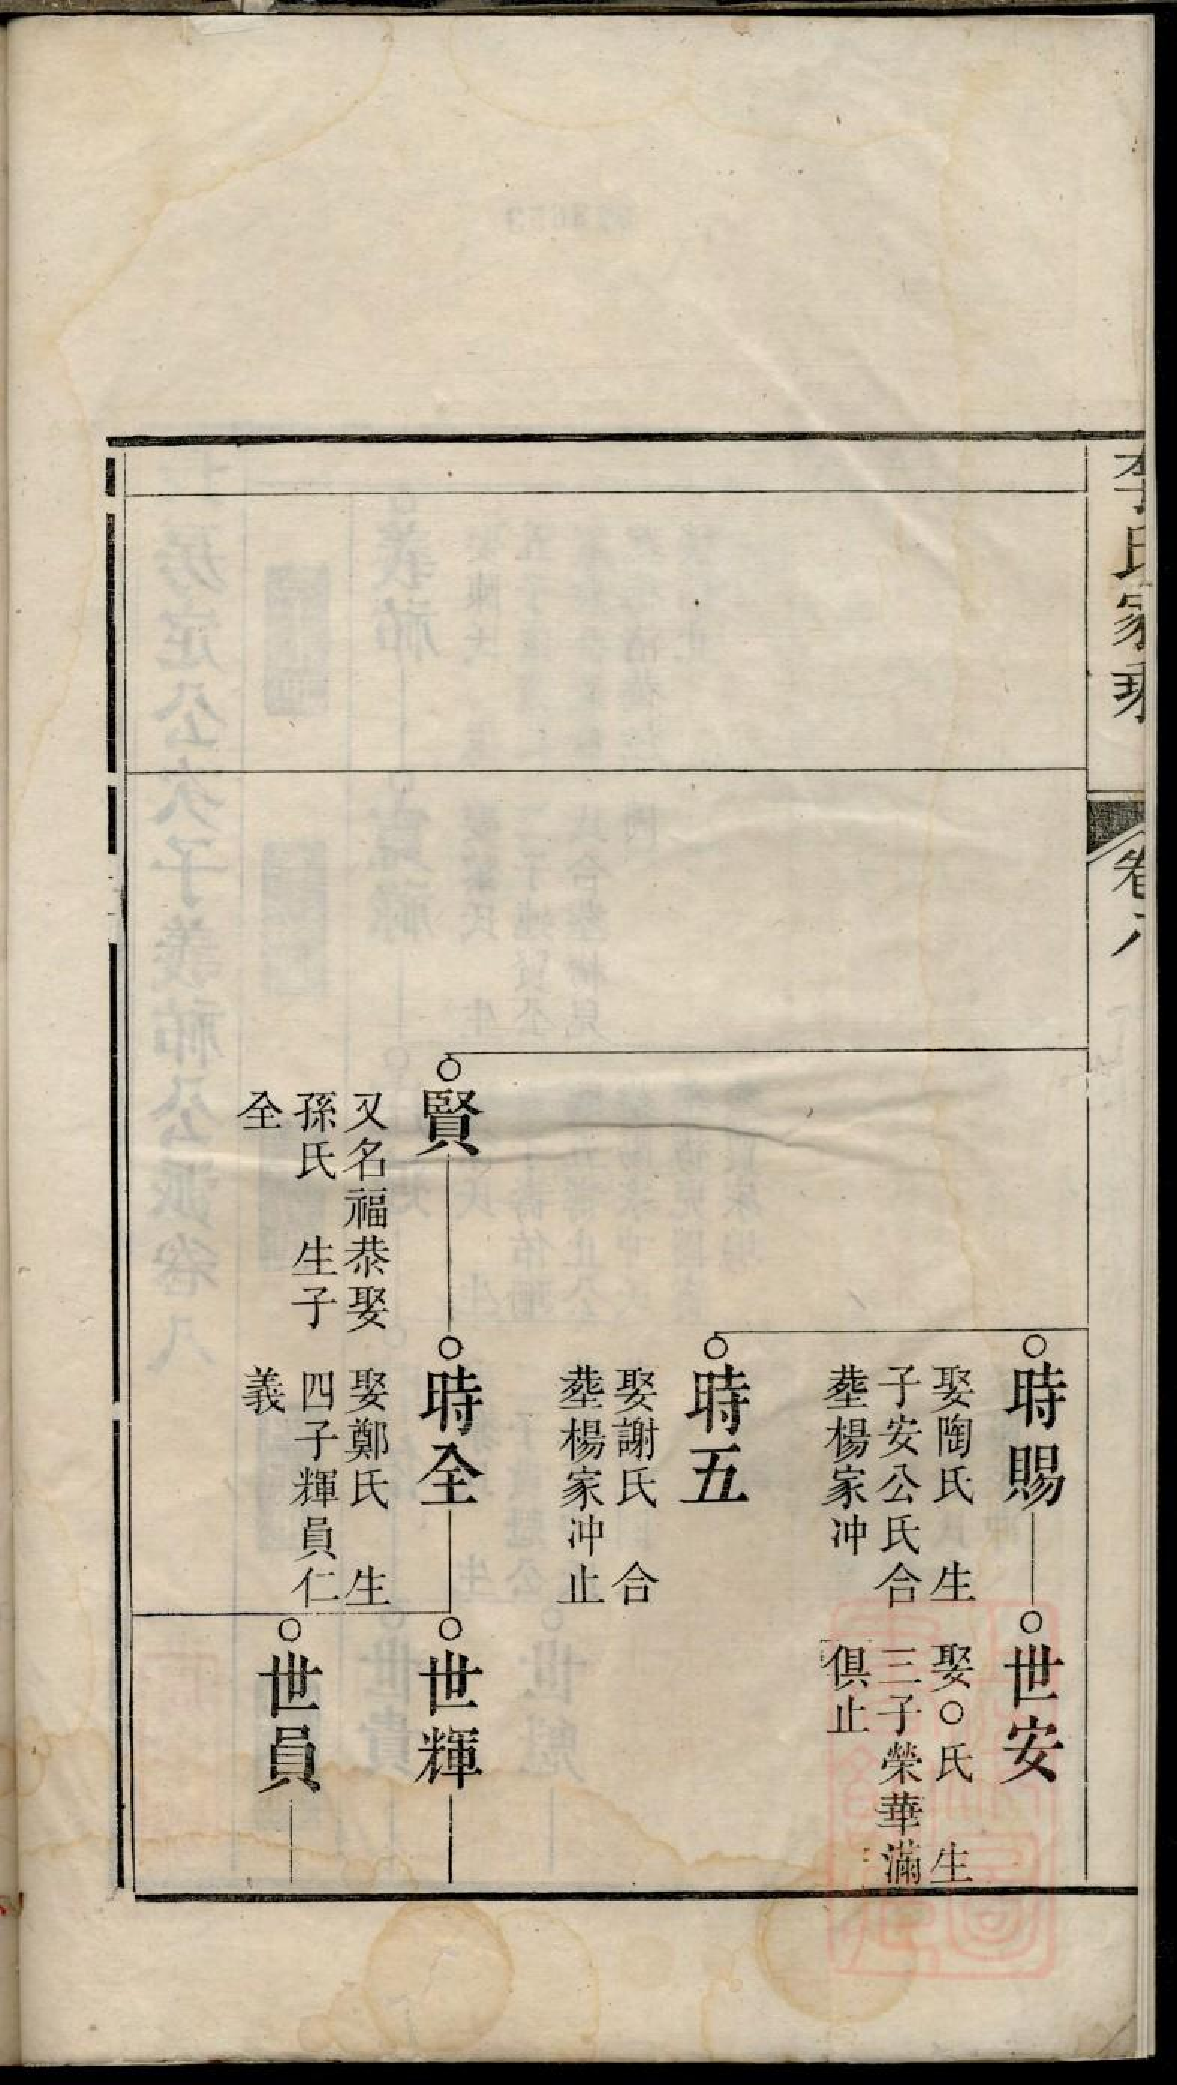 李氏家乘
卷八
時賜
娶陶氏 生
子安公氏合
塟楊家冲
世安
娶○氏 生
三子榮華滿
俱止
時五
娶謝氏 合
塟楊家冲止
賢
又名福恭娶
孫氏 生子
全
時全
娶鄭氏 生
四子輝員仁
義
世輝
世員